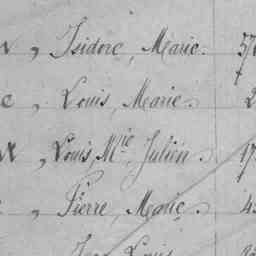 , Isidore, Marie.
, Louis, Marie.
, Louis, Mie, Julien.
, Pierre, Marie.
Louis